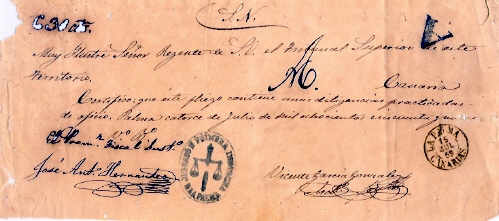 S. N.
Muy Ilustre Señor Regente de S. E. el Tribunal Superior de este
territorio.
M.
Canaria
Certifico: que este pliego contiene unas diligencias practicadas
de oficio. Palma catorce de Julio de mil ochocientos cincuenta y
Vº Bº
José Ant. Hernandez
Vicente Garcia Gonzalez
LA PALMA
15
JUL
CANARIAS